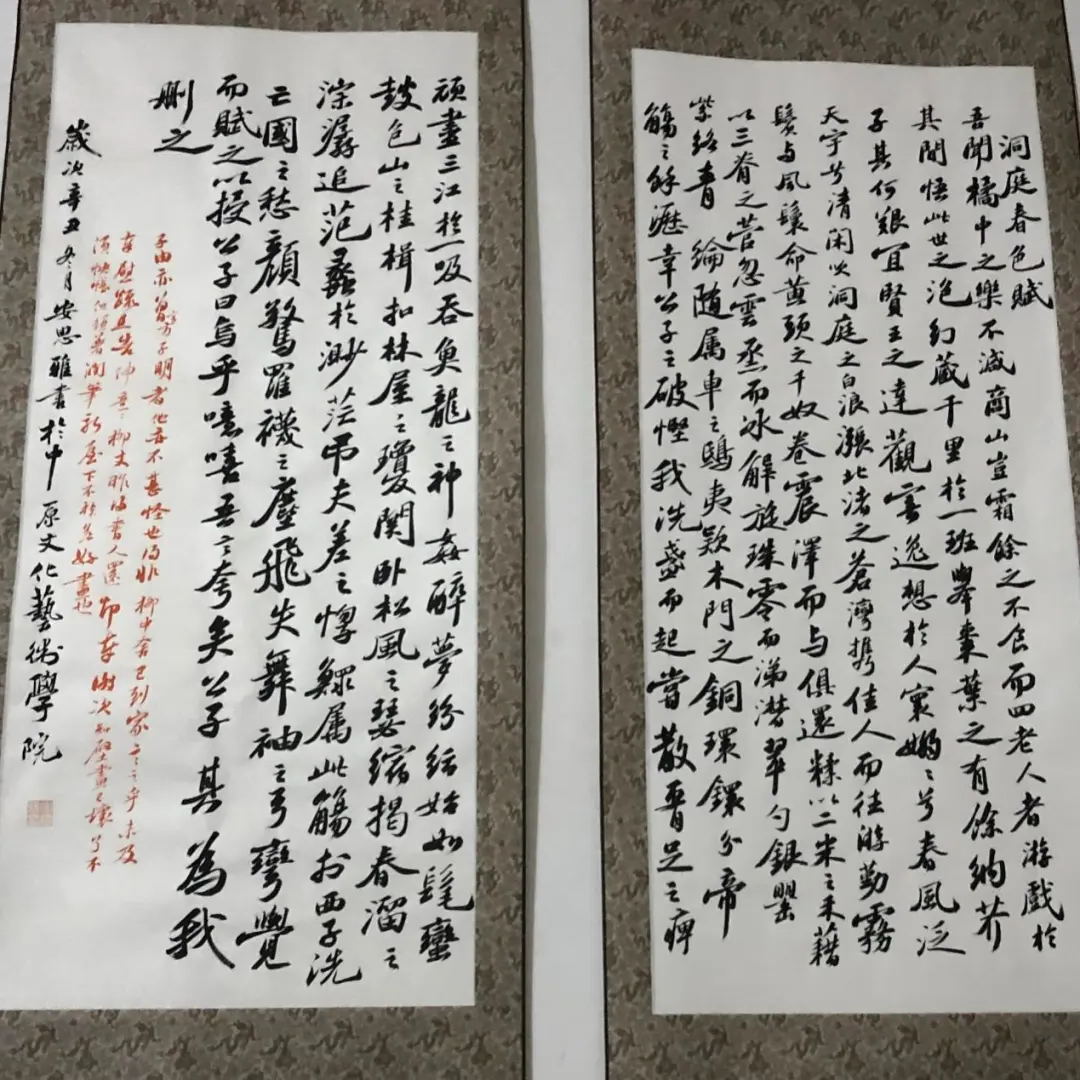 洞庭春色賦
吾聞橘中之樂不減商山豈霜餘之不食而四老人者游戲於
其間悟此世之泡幻藏千里於一班舉棗葉之有餘納芥
子其何艱宜賢王之達觀寄逸想於人寰嫋〻兮春風泛
天宇兮清閑吹洞庭之白浪漲北渚之蒼灣携佳人而往游勤霧
鬢与風鬟命黄頭之千奴卷震澤而与俱還糅以二米之禾藉
以三脊之菅忽雲烝而冰解旋珠零而涕潸翠勺銀罌
紫絡青綸随属車之鴟夷款木門之銅環鐶分帝
觴之餘瀝幸公子之破慳我洗盞而起嘗散腰足之痺
頑盡三江於一吸吞魚龍之神姦醉夢紛紜始如髦蠻
鼓包山之桂楫扣林屋之瓊関卧松風之瑟縮揭春溜之
淙潺追范蠡於渺茫吊夫差之惸鰥属此觴於西子洗
亡國之愁顔驚羅襪之塵飛失舞袖之弓彎覺
而賦之以授公子曰烏乎噫嘻吾言夸矣公子其為我
刪之
子由亦曾言方子明者他亦不甚怪也得非柳中舍已到家言之乎未及
奉慰疏且告伸意〻柳丈昨得書人還即奉謝次知壁畫已壞了不
須怏悵但頓著潤筆新屋下不愁無好畫也
歲次辛丑冬月安思雅書於中原文化藝術學院